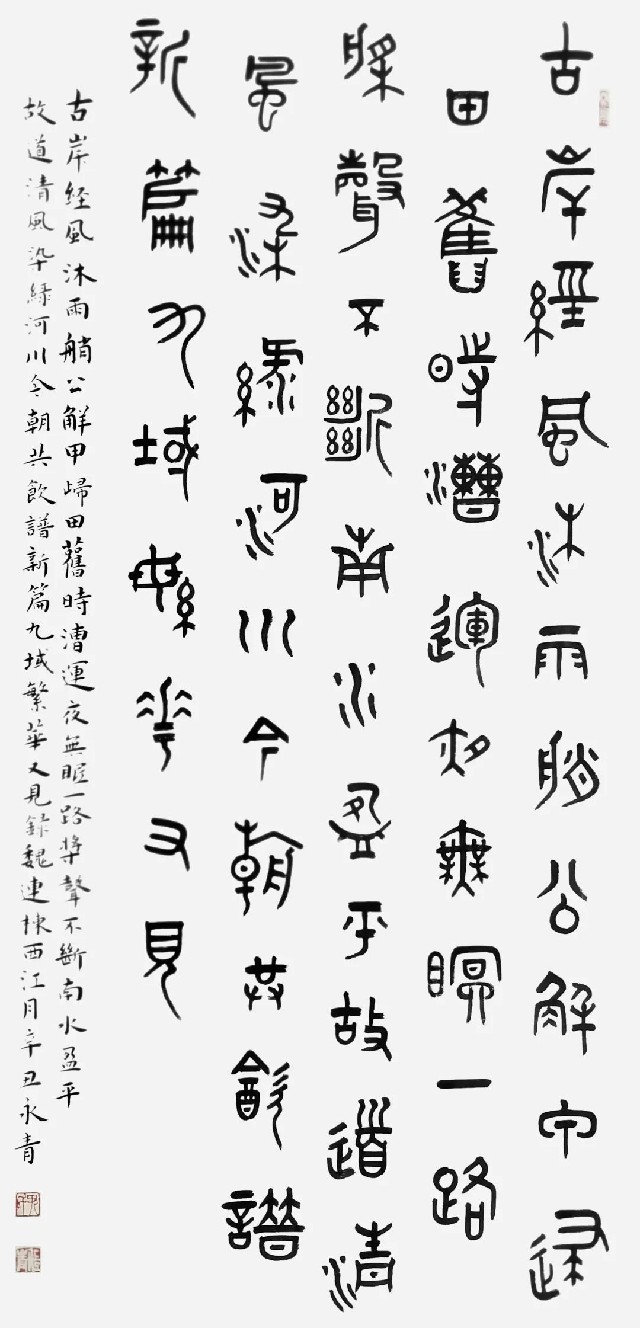 古岸經風沐雨艄公解甲歸
田舊時漕運夜無眠一路
槳聲不斷南水盈平故道清
風染綠河川今朝共飲譜
新篇九域繁華又見
古岸经風沐雨艄公解甲歸田舊時漕運夜無眠一路槳聲不斷南水盈平
故道清風染緑河川今朝共飲譜新篇九域繁華又見録魏連棟西江月辛丑永青